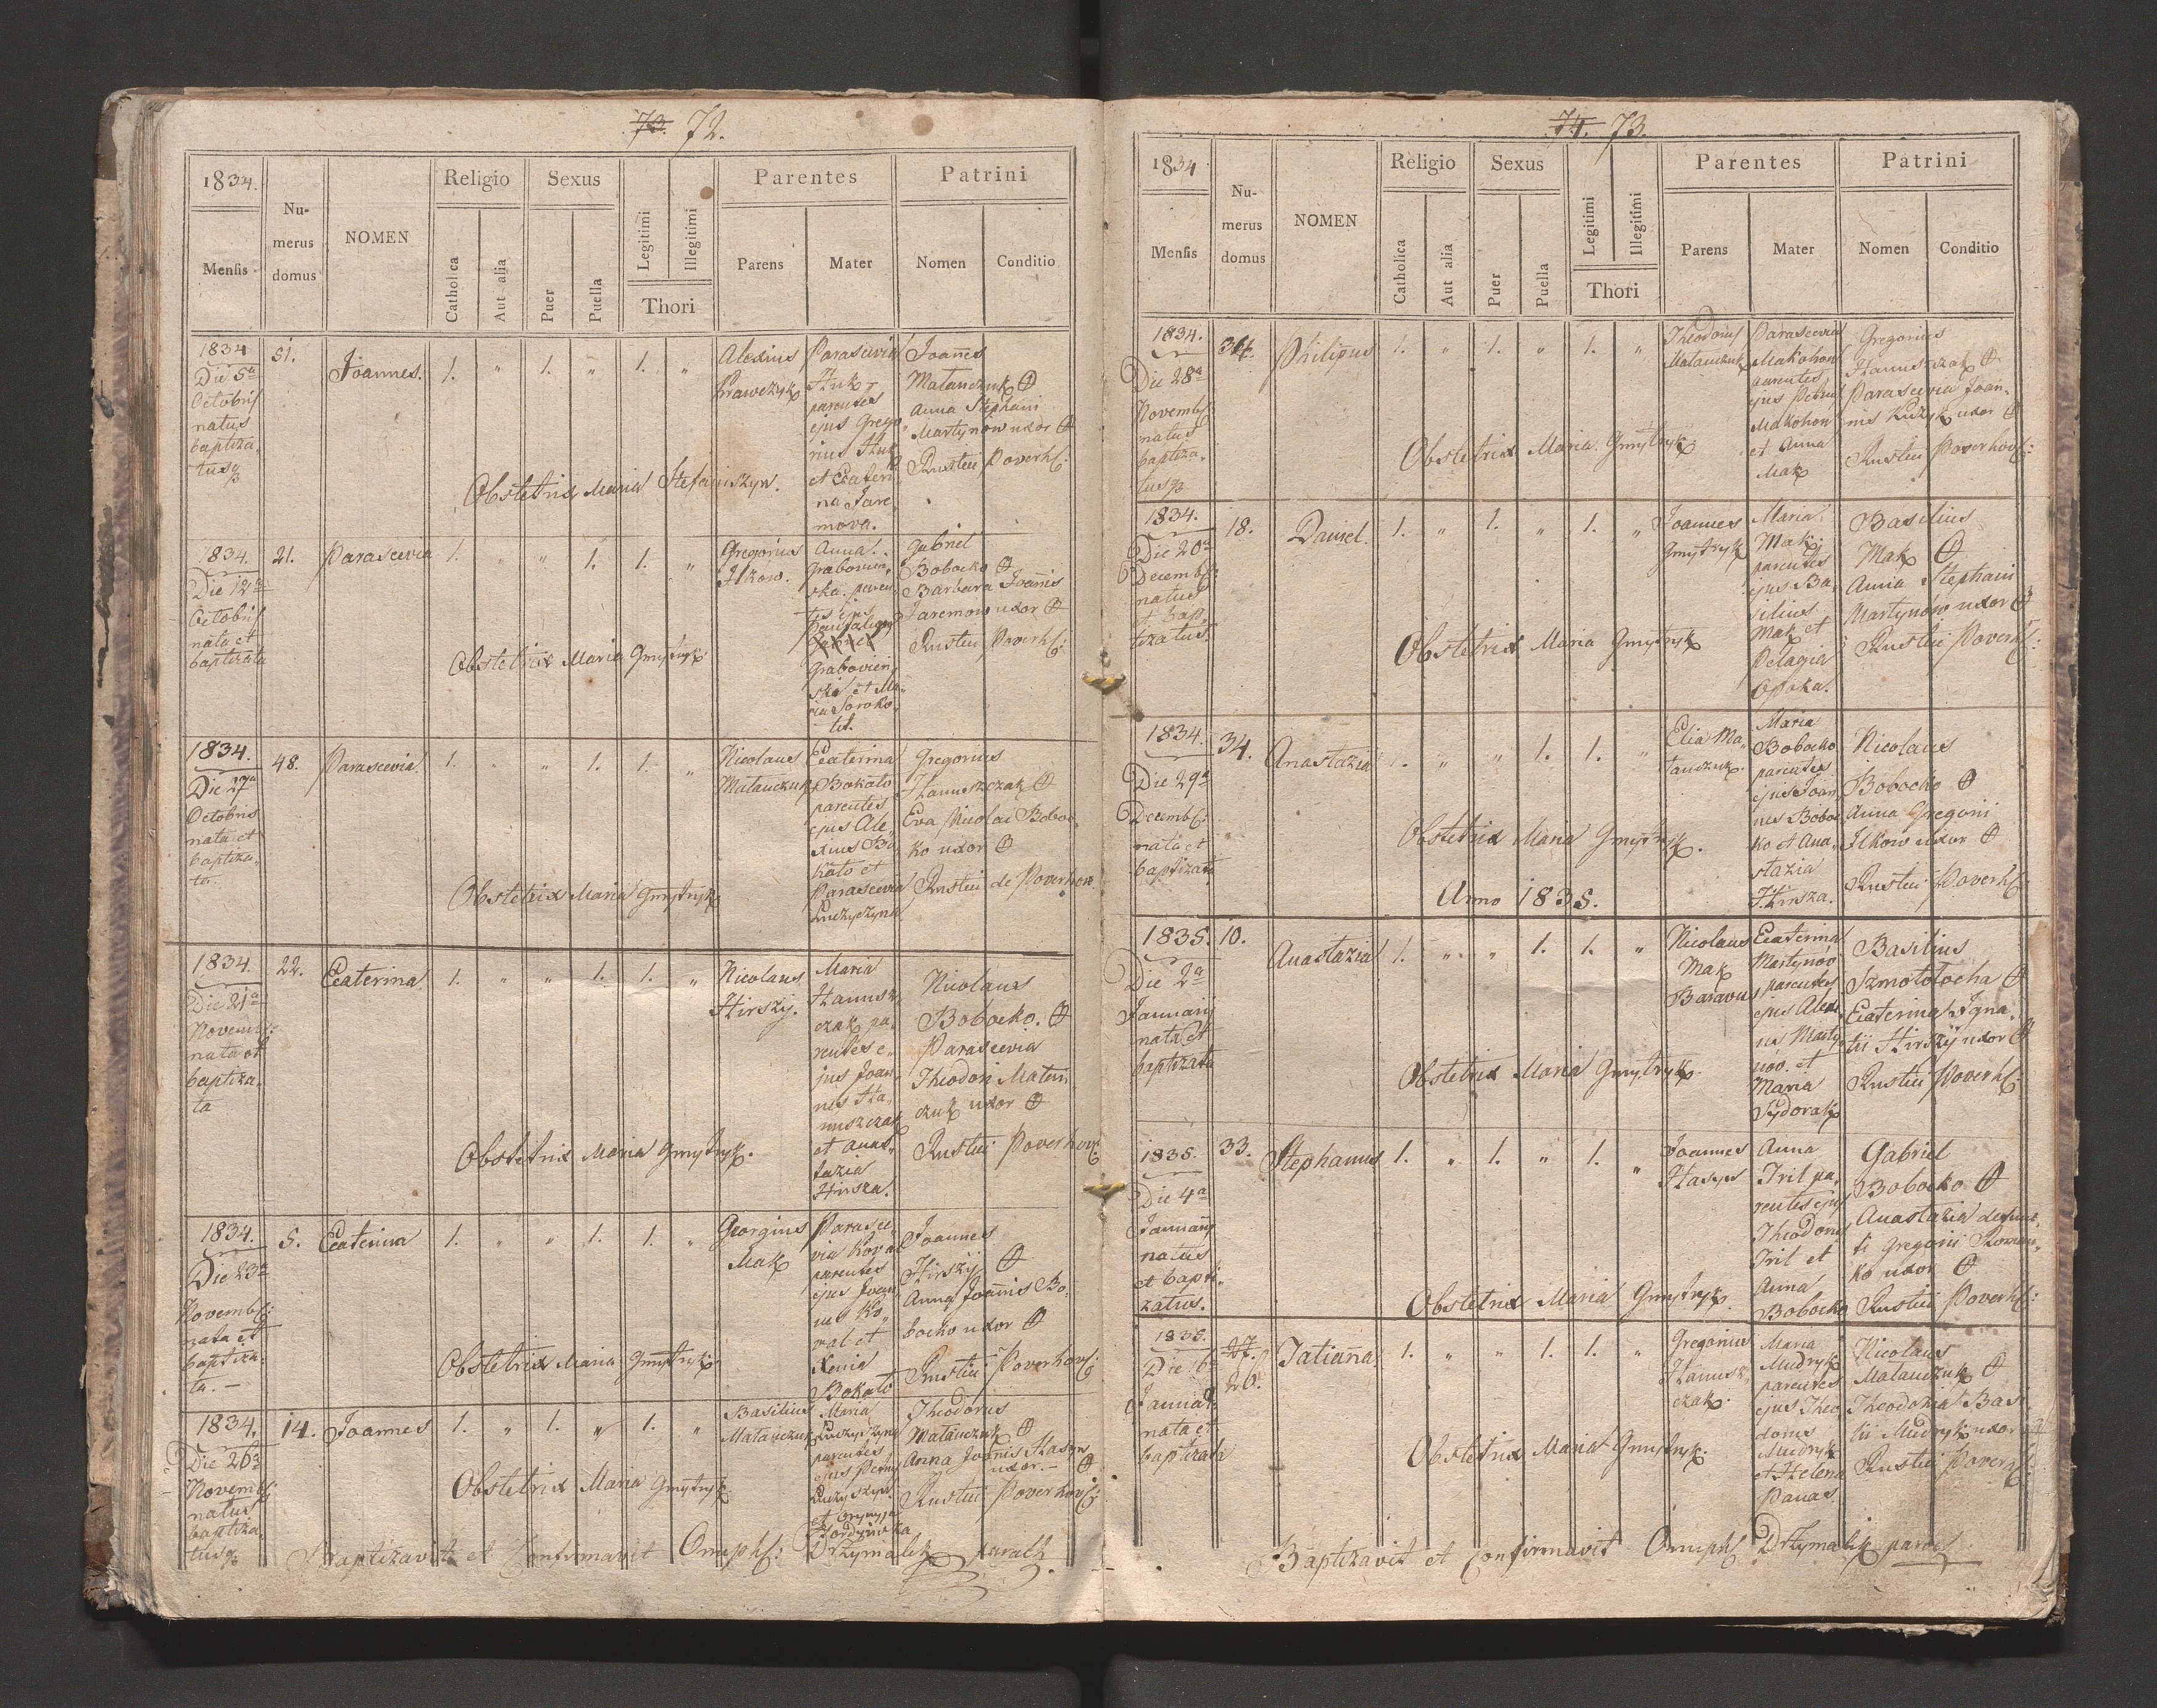 73. 72.
1834.
Mensis
Nu-
merus
domus
NOMEN
Religio
Catholica
Aut alia
Sexus
Puer
Puella
Legitimi
Illegitimi
Thori
Parentes
Parens
Mater
Patrini
Nomen
Conditio
1834
Die 5ta
Octobris
natus
baptiza„
tusq
51.
Joannes.
1. „ 1. „ 1. „
Alexius
Krawczyk
Parascevia
Huk
parentes
ejus Grego„
rius Huk
et Ecateri
na Jare
mova.
Joannes
Matanczuk
Anna Stephani
Martynow uxor
Rustici Poverhs:
Obstetrix Maria Stefaniszyn.
1834.
Die 12a
Octobris
nata et
baptizata
21.
Parascevia
1. „ „ 1. 1. „
Gregorius
Ilkow.
Anna
Grabovien„
ska paren
tes ejus
Grabovien
ska et Ma„
ria Soroko
tit.
Gabriel
Bobocko
Barbara Joannis
Jaremow uxor
Rustici Poverhs:
Obstetrix Maria Gmytryk
1834.
Die 27a
Octobris
nata et
baptiza„
ta.
48.
Parascevia.
1. „ „ 1. 1. „
Nicolaus
Matanczuk
Ecaterina
Bokato
parentes
ejus Ale„
xius Bo„
kato et
Parascevia
Luczyczyna
Gregorius
Hanuszczak
Eva Nicolai Boboc„
ko uxor
Rustici de Poverhow.
Obstetrix Maria Gmytryk
1834.
Die 21a
Novembs:
nata et
baptiza„
ta
22.
Ecaterina
1. „ „ 1. 1. „
Nicolaus
Hirszij.
Maria
Hanusz„
czak pa„
rentes e„
jus Joan„
nes Ha„
nuszczak
et Anas„
tazia
Hirsza.
Nicolaus
Bobocko.
Parascevia
Theodori Matan
czuk uxor
Rustici Poverhovs:
Obstetrix Maria Gmytryk.
1834.
Die 23a
Novembs:
nata et
baptiza„
ta. —
5.
Ecaterina
1. „ „ 1. 1. „
Georgius
Mak
Parasce„
via Koval
parentes
ejus Joan„
nes Ko„
val et
Xenia
Bokato
Joannes
Hirszij
Anna Joannis Bo„
bocko uxor
Rustici Poverhovs:
Obstetrix Maria Gmytryk
1834.
Die 26a
Novembs:
natus
baptiza„
tusq
14.
Joannes
1. „ 1. „ 1. „
Basilius
Matanczuk
Maria
parentes
ejus Petrus
et
Theodorus
Matanczuk
Anna Joannis Hasyn
uxor. —
Rustici Poverhovs:
Obstetrix Maria Gmytryk
Baptizavit et Confirmavit Onuphs: Drzymalik paroch.
74. 73.
1834
Mensis
Nu-
merus
domus
NOMEN
Religio
Catholica
Aut alia
Sexus
Puer
Puella
Legitimi
Illegitimi
Thori
Parentes
Parens
Mater
Patrini
Nomen
Conditio
1834.
Die 28a
Novembs:
natus
baptiza„
tusq
34.
Philipus
1. „ 1. „ 1. „
Theodorus
Matanczuk
Parascevia
Makohon
parentes
ejus Petrus
Makohon
et Anna
Mak
Gregorius
Hanuszczak
Parascevia Joan„
nis Kuzyk uxor
Rustici Poverhovs:
Obstetrix Maria Gmytryk
1834.
Die 20a
Decembs:
natus
et bap„
tizatus.
18.
Daniel.
1. „ 1. „ 1. „
Joannes
Gmytryk
Maria
Mak
parentes
ejus Ba„
silius
Mak et
Pelagia
Opoka.
Basilius
Mak
Anna Stephani
Martynów uxor
Rustici Poverhs:
Obstetrix Maria Gmytryk
1834.
Die 29a
Decembs:
nata et
baptizata
34.
Anastazia
1. „ „ 1. 1. „
Elia Ma„
tanczuk.
Maria
Bobocko
parentes
ejus Joan„
nes Boboc„
ko et Ana„
stazia
Hirsza.
Nicolaus
Bobocko
Anna Gregorii
Ilkow uxor
Rustici Poverhs:
Obstetrix Maria Gmytryk.
Anno 1835.
1835.
Die 2a
Januarij
nata et
baptizata
10.
Anastazia
1. „ „ 1. 1. „
Nicolaus
Mak
Baravus
Ecaterina
Martynov
parentes
ejus Alexi„
us Marty„
nov. et
Maria
Sydorak
Basilius
Szmotolocha
Ecaterina Igna„
tii Hirszij uxor
Rustici Poverhs:
Obstetrix Maria Gmytryk.
1835.
Die 4a
Januarij
natus
et bapti„
zatus.
33.
Stephanus
1. „ 1. „ 1. „
Joannes
Hasyn
Anna
Iril pa„
rentes ejus
Theodorus
Iril et
Anna
Bobocko
Gabriel
Bobocko
Anastazia defunc„
ti Gregorii
ko uxor
Rustici Poverhs:
Obstetrix Maria Gmytryk.
1835.
Die 6a
Januar:
nata et
baptizata
27.
26.
Tatianna.
1. „ „ 1. 1. „
Gregorius
Hanusz„
czak.
Maria
Mudryk
parentes
ejus Theo„
dorus
Mudryk
et Helena
Panas
Nicolaus
Matanczuk
Theodozia Basi„
lii Mudryk uxor
Rustici Poverhs:
Obstetrix Maria Gmytryk.
Baptizavit et Confirmavit Onuphs Drzymalik paroch